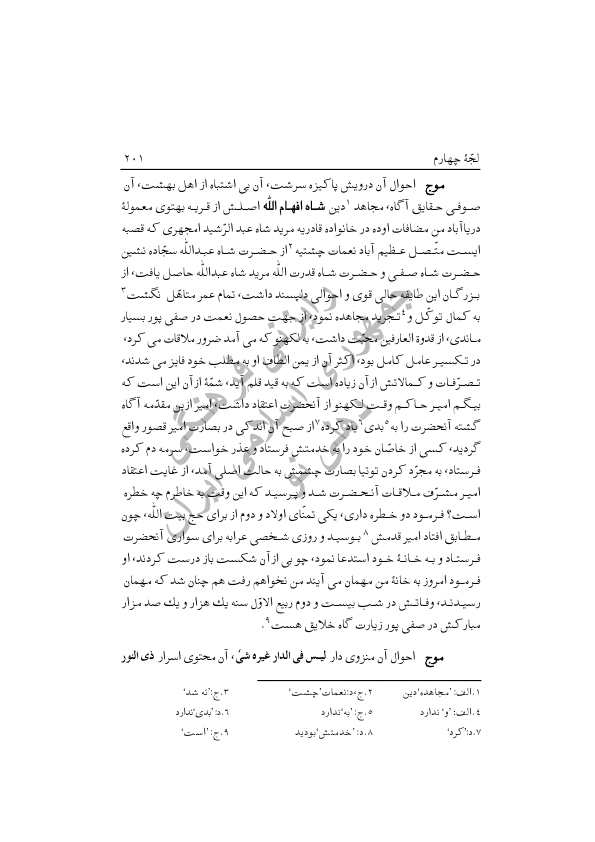 لجّهٔ چهارم ۲۰۱
موج احوال آن درویش پاکیزه سرشت، آن بی اشتباه از اهل بهشت، آن
صوفی حقایق آگاه، مجاهد ۱دین شاه افهام الله اصلش از قریه بهتوی معمولهٔ
دریاآباد من مضافات اوده در خانواده قادریه مرید شاه عبد الرّشید امجهری که قصبه
ایست متّصل عظیم آباد نعمات چشتیه ۲از حضرت شاه عبدالله سجّاده نشین
حضرت شاه صفی و حضرت شاه قدرت الله مرید شاه عبدالله حاصل یافت، از
بزرگان این طایفه حالی قوی و احوالی دلپسند داشت، تمام عمر متاهّل نگشت۳
به کمال توکّل و۴تجرید مجاهده نمود، از جهت حصول نعمت در صفی پور بسیار
ماندی، از قدوة العارفین محبّت داشت، به لکهنو که می آمد ضرور ملاقات می کرد،
در تکسیر عامل کامل بود، اکثر آن از یمن الطاف او به مطلب خود فایز می شدند،
تصرّفات و کمالاتش از آن زیاده است که به قید قلم آید، شمّهٔ از آن این است که
بیگم امیر حاکم وقت لکهنو از آنحضرت اعتقاد داشت، امیر ازین مقدّمه آگاه
گشته آنحضرت را به ۵بدی۶یاد کرده۷از صبح آن اندکی در بصارت امیر قصور واقع
گردید، کسی از خاصّان خود را به خدمتش فرستاد و عذر خواست، سرمه دم کرده
فرستاد، به مجرّد کردن توتیا بصارت چشمش به حالت اصلی آمد، از غایت اعتقاد
امیر مشرّف ملاقات آنحضرت شد و پرسید که این وقت به خاطرم چه خطره
است؟ فرمود دو خطره داری، یکی تمنّای اولاد و دوم از برای حج بیت الله، چون
مطابق افتاد امیر قدمش ۸ بوسید و روزی شخصی عرابه برای سواری آنحضرت
فرستاد و به خانهٔ خود استدعا نمود، چو بی از آن شکست باز درست کردند، او
فرمود امروز به خانهٔ من مهمان می آیند من نخواهم رفت هم چنان شد که مهمان
رسیدند، وفاتش در شب بیست و دوم ربیع الاوّل سنه یك هزار و یك صد مزار
مبارکش در صفی پور زیارت گاه خلایق هست۹.
موج احوال آن منزوی دار لیس فی الدار غیره شیٔ، آن محتوی اسرار ذی النور
۱.الف: ’مجاهده‘دین ۲.ج،د:نعمات’چشت‘ ۳.ج:’نه شد‘
۴.الف: ’و‘ ندارد ۵.ج: ’به‘ندارد ۶.د:’بدی‘ندارد
۷.د:’کرد‘ ۸.د: ’خدمتش‘بودید ۹.ج:’است‘